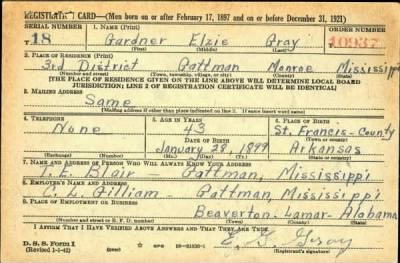 REGISTRATION CARD—(Men born on or after February 17, 1897 and on or before December 31, 1921)
SERIAL NUMBER 1. NAME (Print) ORDER NUMBER
T 18 Gardner Elzie Gray 10937
(First) (Middle) (Last)
2. PLACE OF RESIDENCE (Print)
3rd District Gattman Monroe Mississippi
(Number and street) (Town, township, village, or city) (County) (State)
[THE PLACE OF RESIDENCE GIVEN ON THE LINE ABOVE WILL DETERMINE LOCAL BOARD
JURISDICTION; LINE 2 OF REGISTRATION CERTIFICATE WILL BE IDENTICAL]
3. MAILING ADDRESS
Same
[Mailing address if other than place indicated on line 2. If same insert word same]
4. TELEPHONE 5. AGE IN YEARS 6. PLACE OF BIRTH
None 43 St. Francis-County
DATE OF BIRTH (Town or county)
January 28, 1899 Arkansas
(Exchange) (Number) (Mo.) (Day) (Yr.) (State or country)
7. NAME AND ADDRESS OF PERSON WHO WILL ALWAYS KNOW YOUR ADDRESS
T. E. Blair — Gattman, Mississippi
8. EMPLOYER'S NAME AND ADDRESS
C. L. Gilliam Gattman, Mississippi
9. PLACE OF EMPLOYMENT OR BUSINESS
Beaverton-Lamar-Alabama
(Number and street or R. F. D. number) (Town) (County) (State)
I AFFIRM THAT I HAVE VERIFIED ABOVE ANSWERS AND THAT THEY ARE TRUE.
D. S. S. Form 1
(Revised 1-1-42) (Registrant's signature)
E. G. Gray